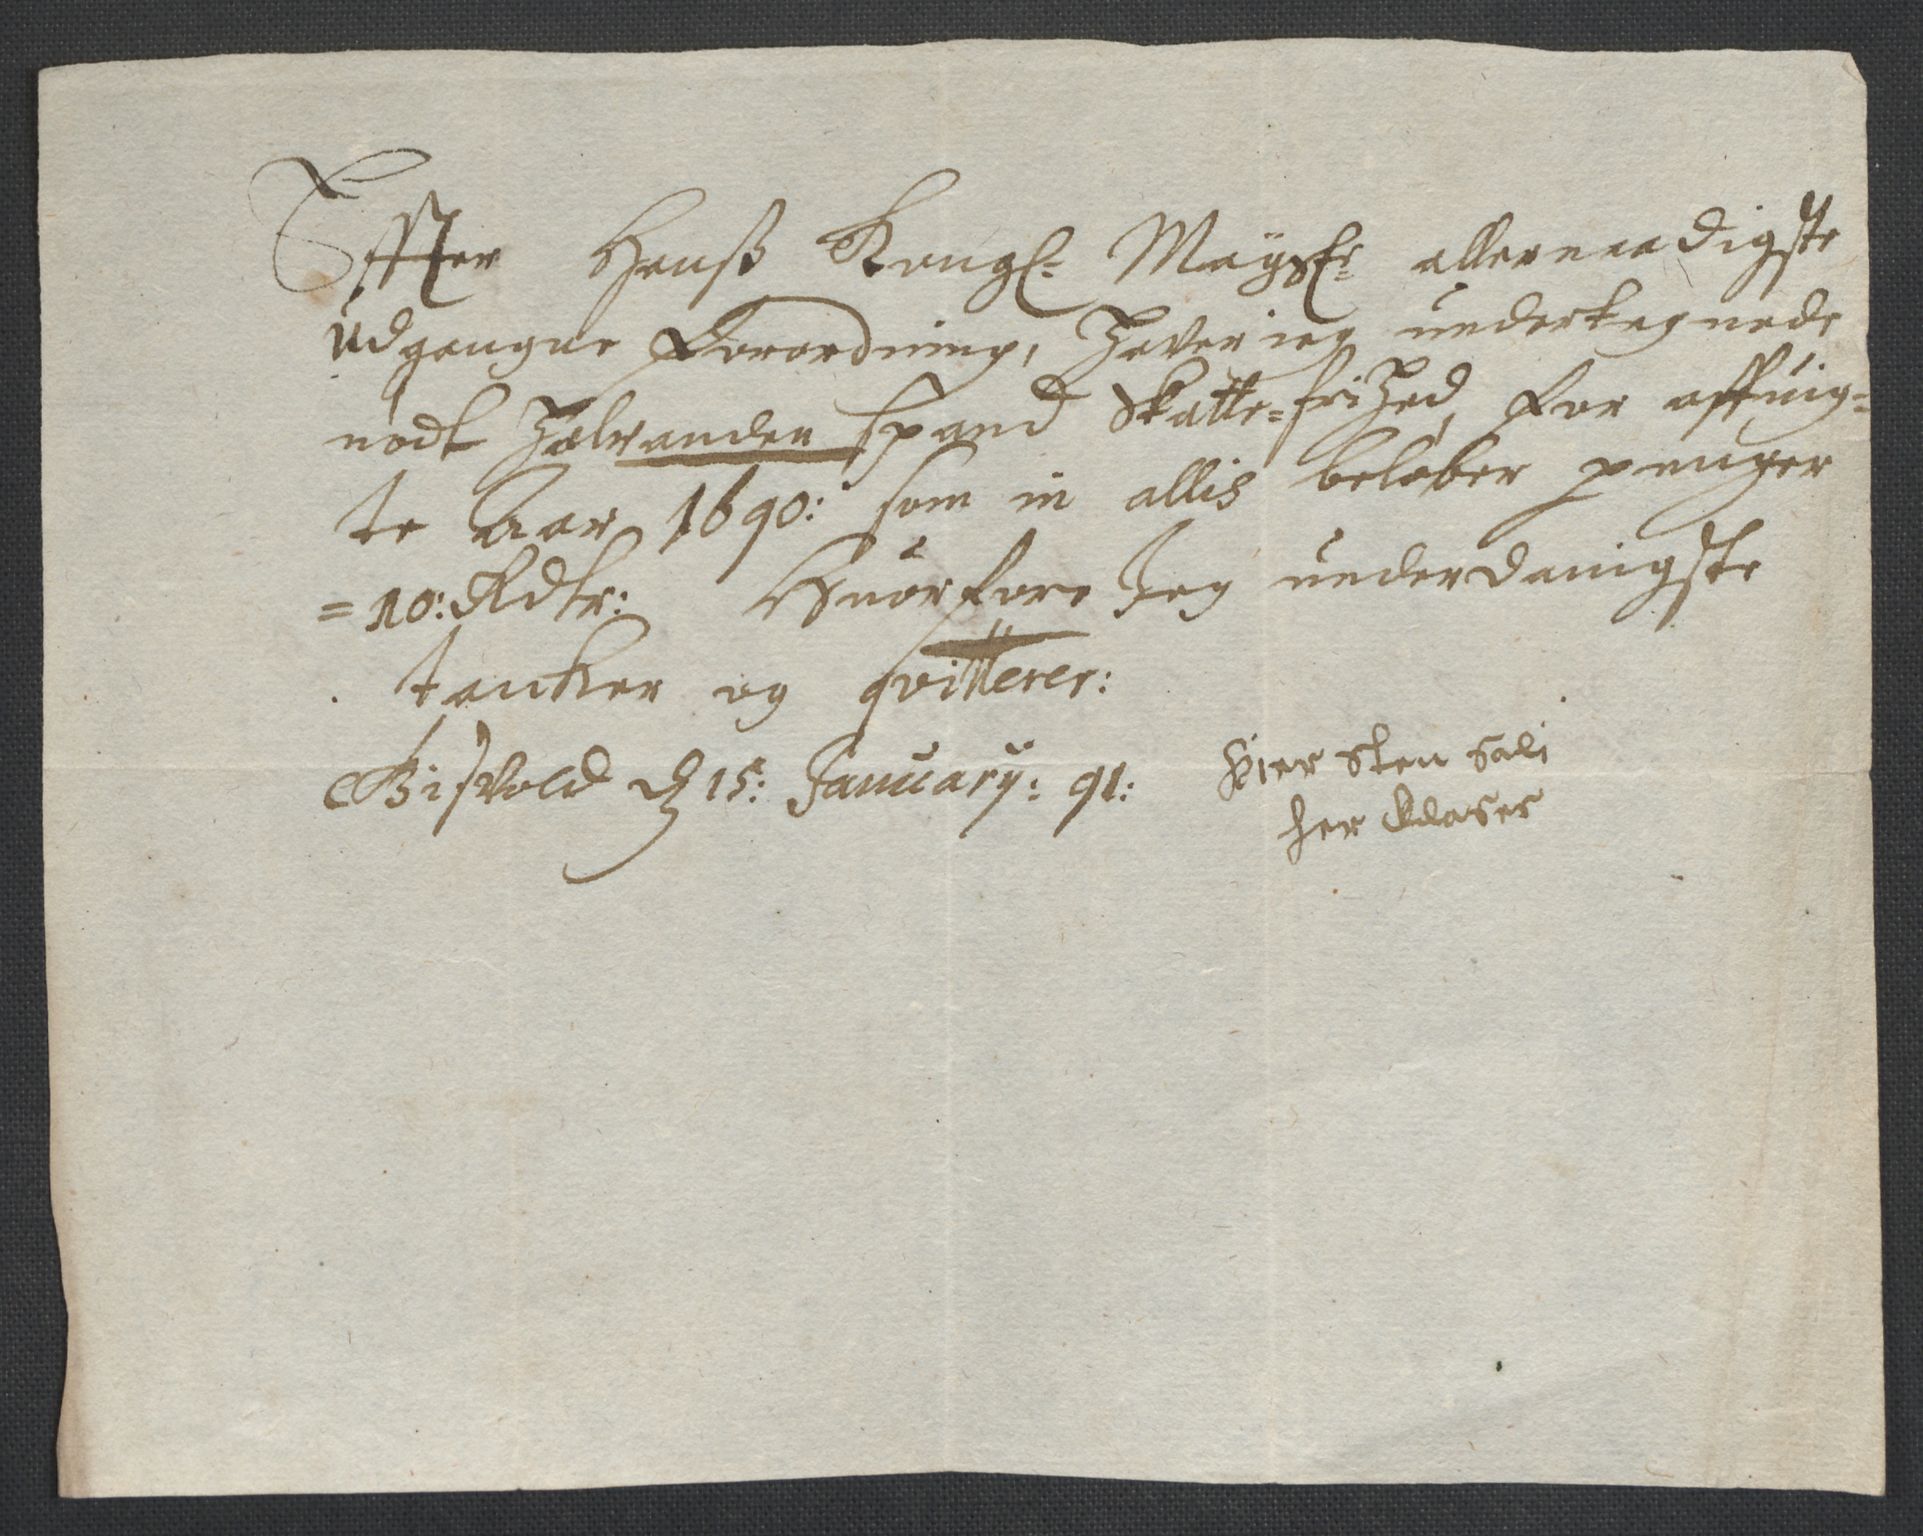 Effter Hanß Kongl: Mayst: allernaadigste
Udgangne Forordning, Haver ieg undertegnede
nødt Halvanden Spand Skatte-friHed, for affuig-
te Aar 1690: som in allis beløber penger
=10: Rdlr: Huorfore Jeg underdanigste
tancker og qvitterer:
Bisvold d 15: January: 91:
Hier Sten Sali
her Klases